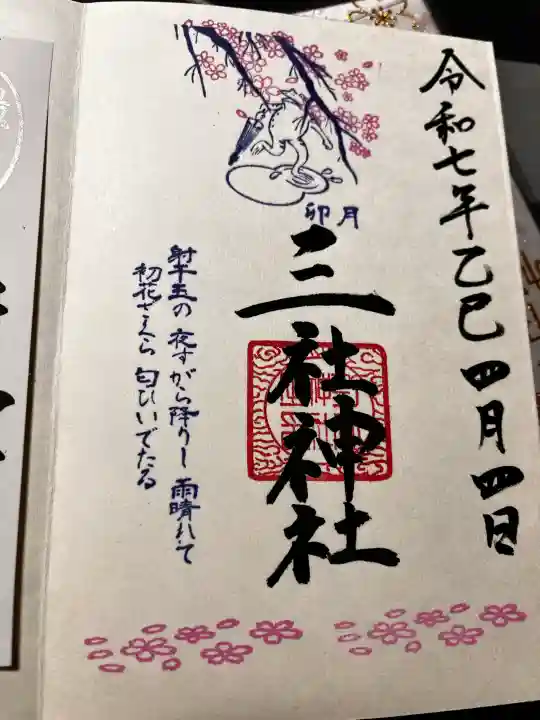 令和七年乙巳四月四日
卯月
三社神社
夜すがら降りし雨晴れて
初花ざくら匂ひいでたる